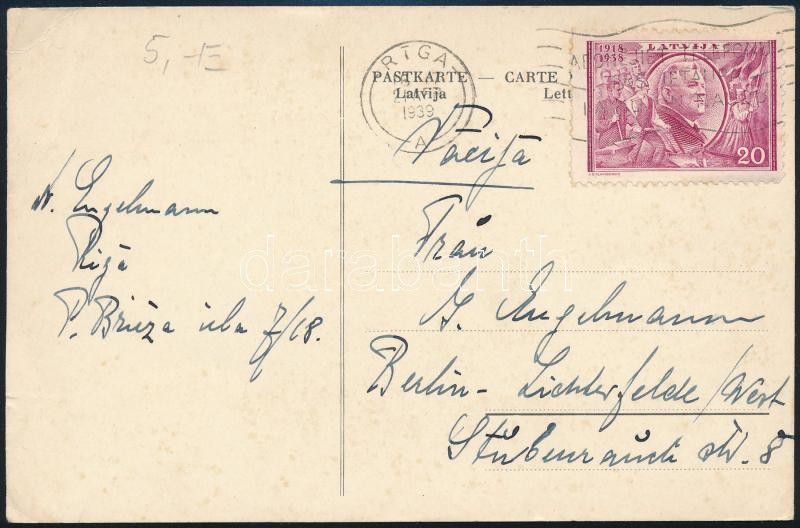 5,-
RIGA
1939
A
PASTKARTE — CARTE
Latvija Lett
1918 LATVIJA
1938
20
Vācijā
Frau
G. Engelmann
Berlin-Lichterfelde/West
Stubenrauch str. 8
N. Engelmann
Rīgā
P. Brieža iela 7/18.
darabanth